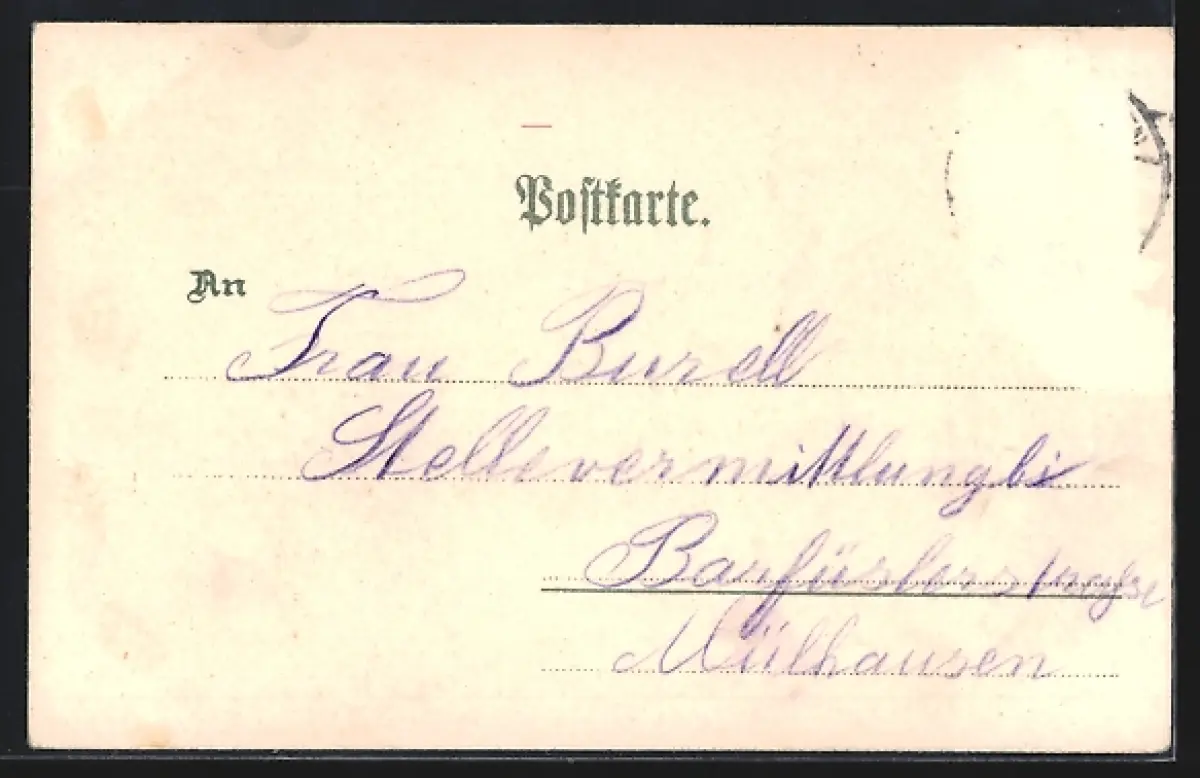 Postkarte.
An
Frau Burell
Stellevermittlungbi
Barfüsler
Mülhausen